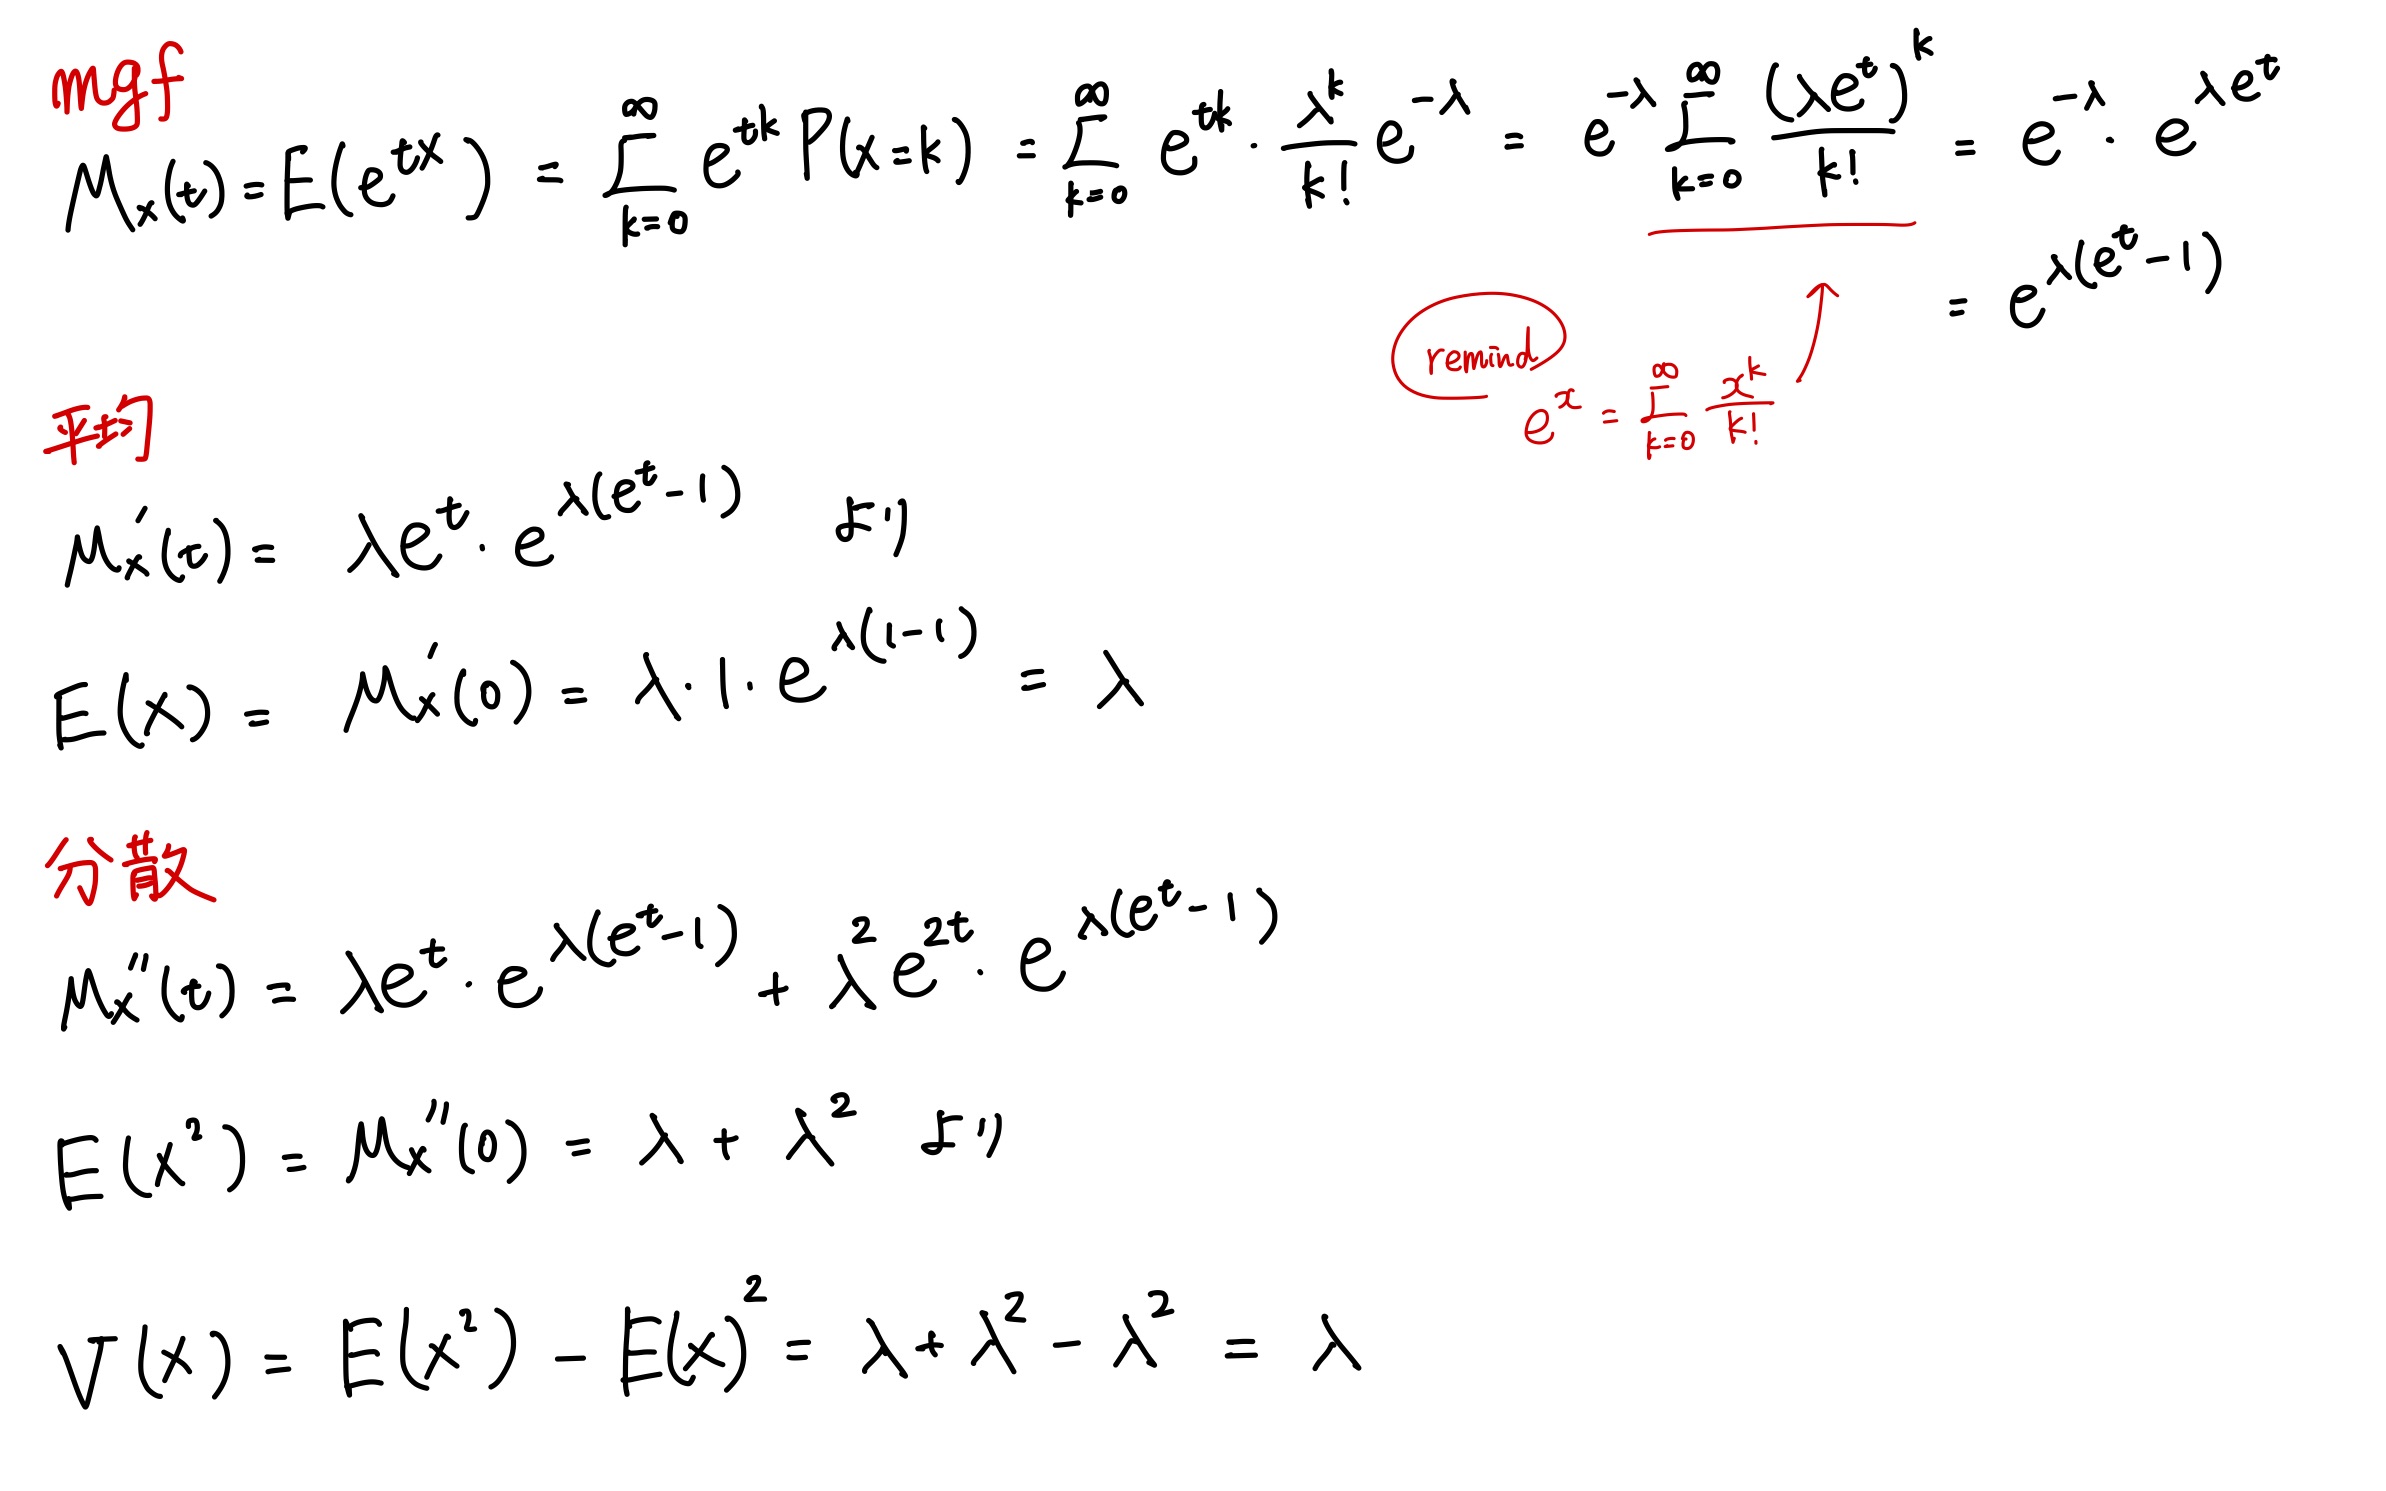 mgf
M_X(t) = E(e^{tX}) = \sum_{k=0}^{∞} e^{tk} P(X=k) = \sum_{k=0}^{∞} e^{tk} · \frac{λ^k}{k!} e^{-λ} = e^{-λ} \sum_{k=0}^{∞} \frac{(λe^t)^k}{k!} = e^{-λ} · e^{λe^t}
= e^{λ(e^t-1)}
remind
e^x = \sum_{k=0}^{∞} \frac{x^k}{k!}
平均
M_X'(t) = λe^t · e^{λ(e^t-1)} より
E(X) = M_X'(0) = λ · 1 · e^{λ(1-1)} = λ
分散
M_X''(t) = λe^t · e^{λ(e^t-1)} + λ^2 e^{2t} · e^{λ(e^t-1)}
E(X^2) = M_X''(0) = λ + λ^2 より
V(X) = E(X^2) - E(X)^2 = λ + λ^2 - λ^2 = λ